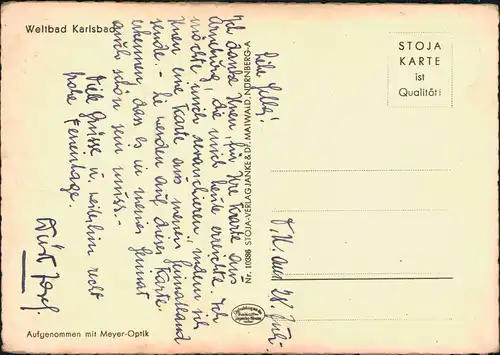 Weltbad Karlsbad
STOJA
KARTE
ist
Qualität!
Ich danke Ihnen, für Ihre Karte aus
die mich heute erreichte. Ich
möchte mich revanchieren, indem ich
Ihnen eine Karte aus meinem Heimatland
sende. – Sie werden auf dieser Karte
erkennen, dass es in meiner Heimat
auch schön sein muss. –
Viele Grüsse u. weiterhin recht
frohe Ferientage.
Nr. 10386 STOJA-VERLAG JANKE & Dr. MAIWALD, NÜRNBERG-A
Aufgenommen mit Meyer-Optik